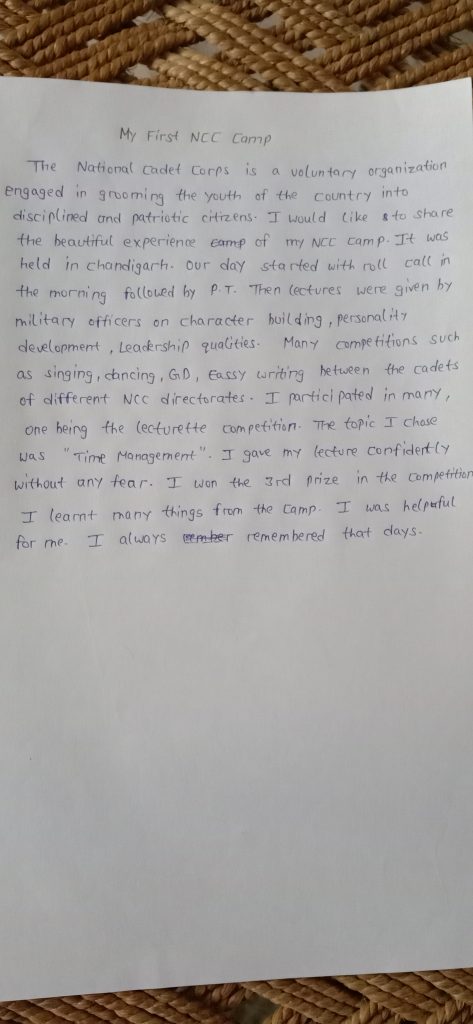 My First NCC Camp
The National Cadet Corps is a voluntary organization
engaged in grooming the youth of the country into
disciplined and patriotic citizens. I would like to share
the beautiful experience camp of my NCC camp. It was
held in Chandigarh. Our day started with roll call in
the morning followed by P.T. Then lectures were given by
military officers on character building, personality
development, Leadership qualities. Many competitions such
as singing, dancing, GD, Eassy writing between the cadets
of different NCC directorates. I participated in many,
one being the lecturette competition. The topic I chose
was "Time Management". I gave my lecture confidently
without any fear. I won the 3rd prize in the competition
I learnt many things from the camp. I was helpful
for me. I always remember remembered that days.